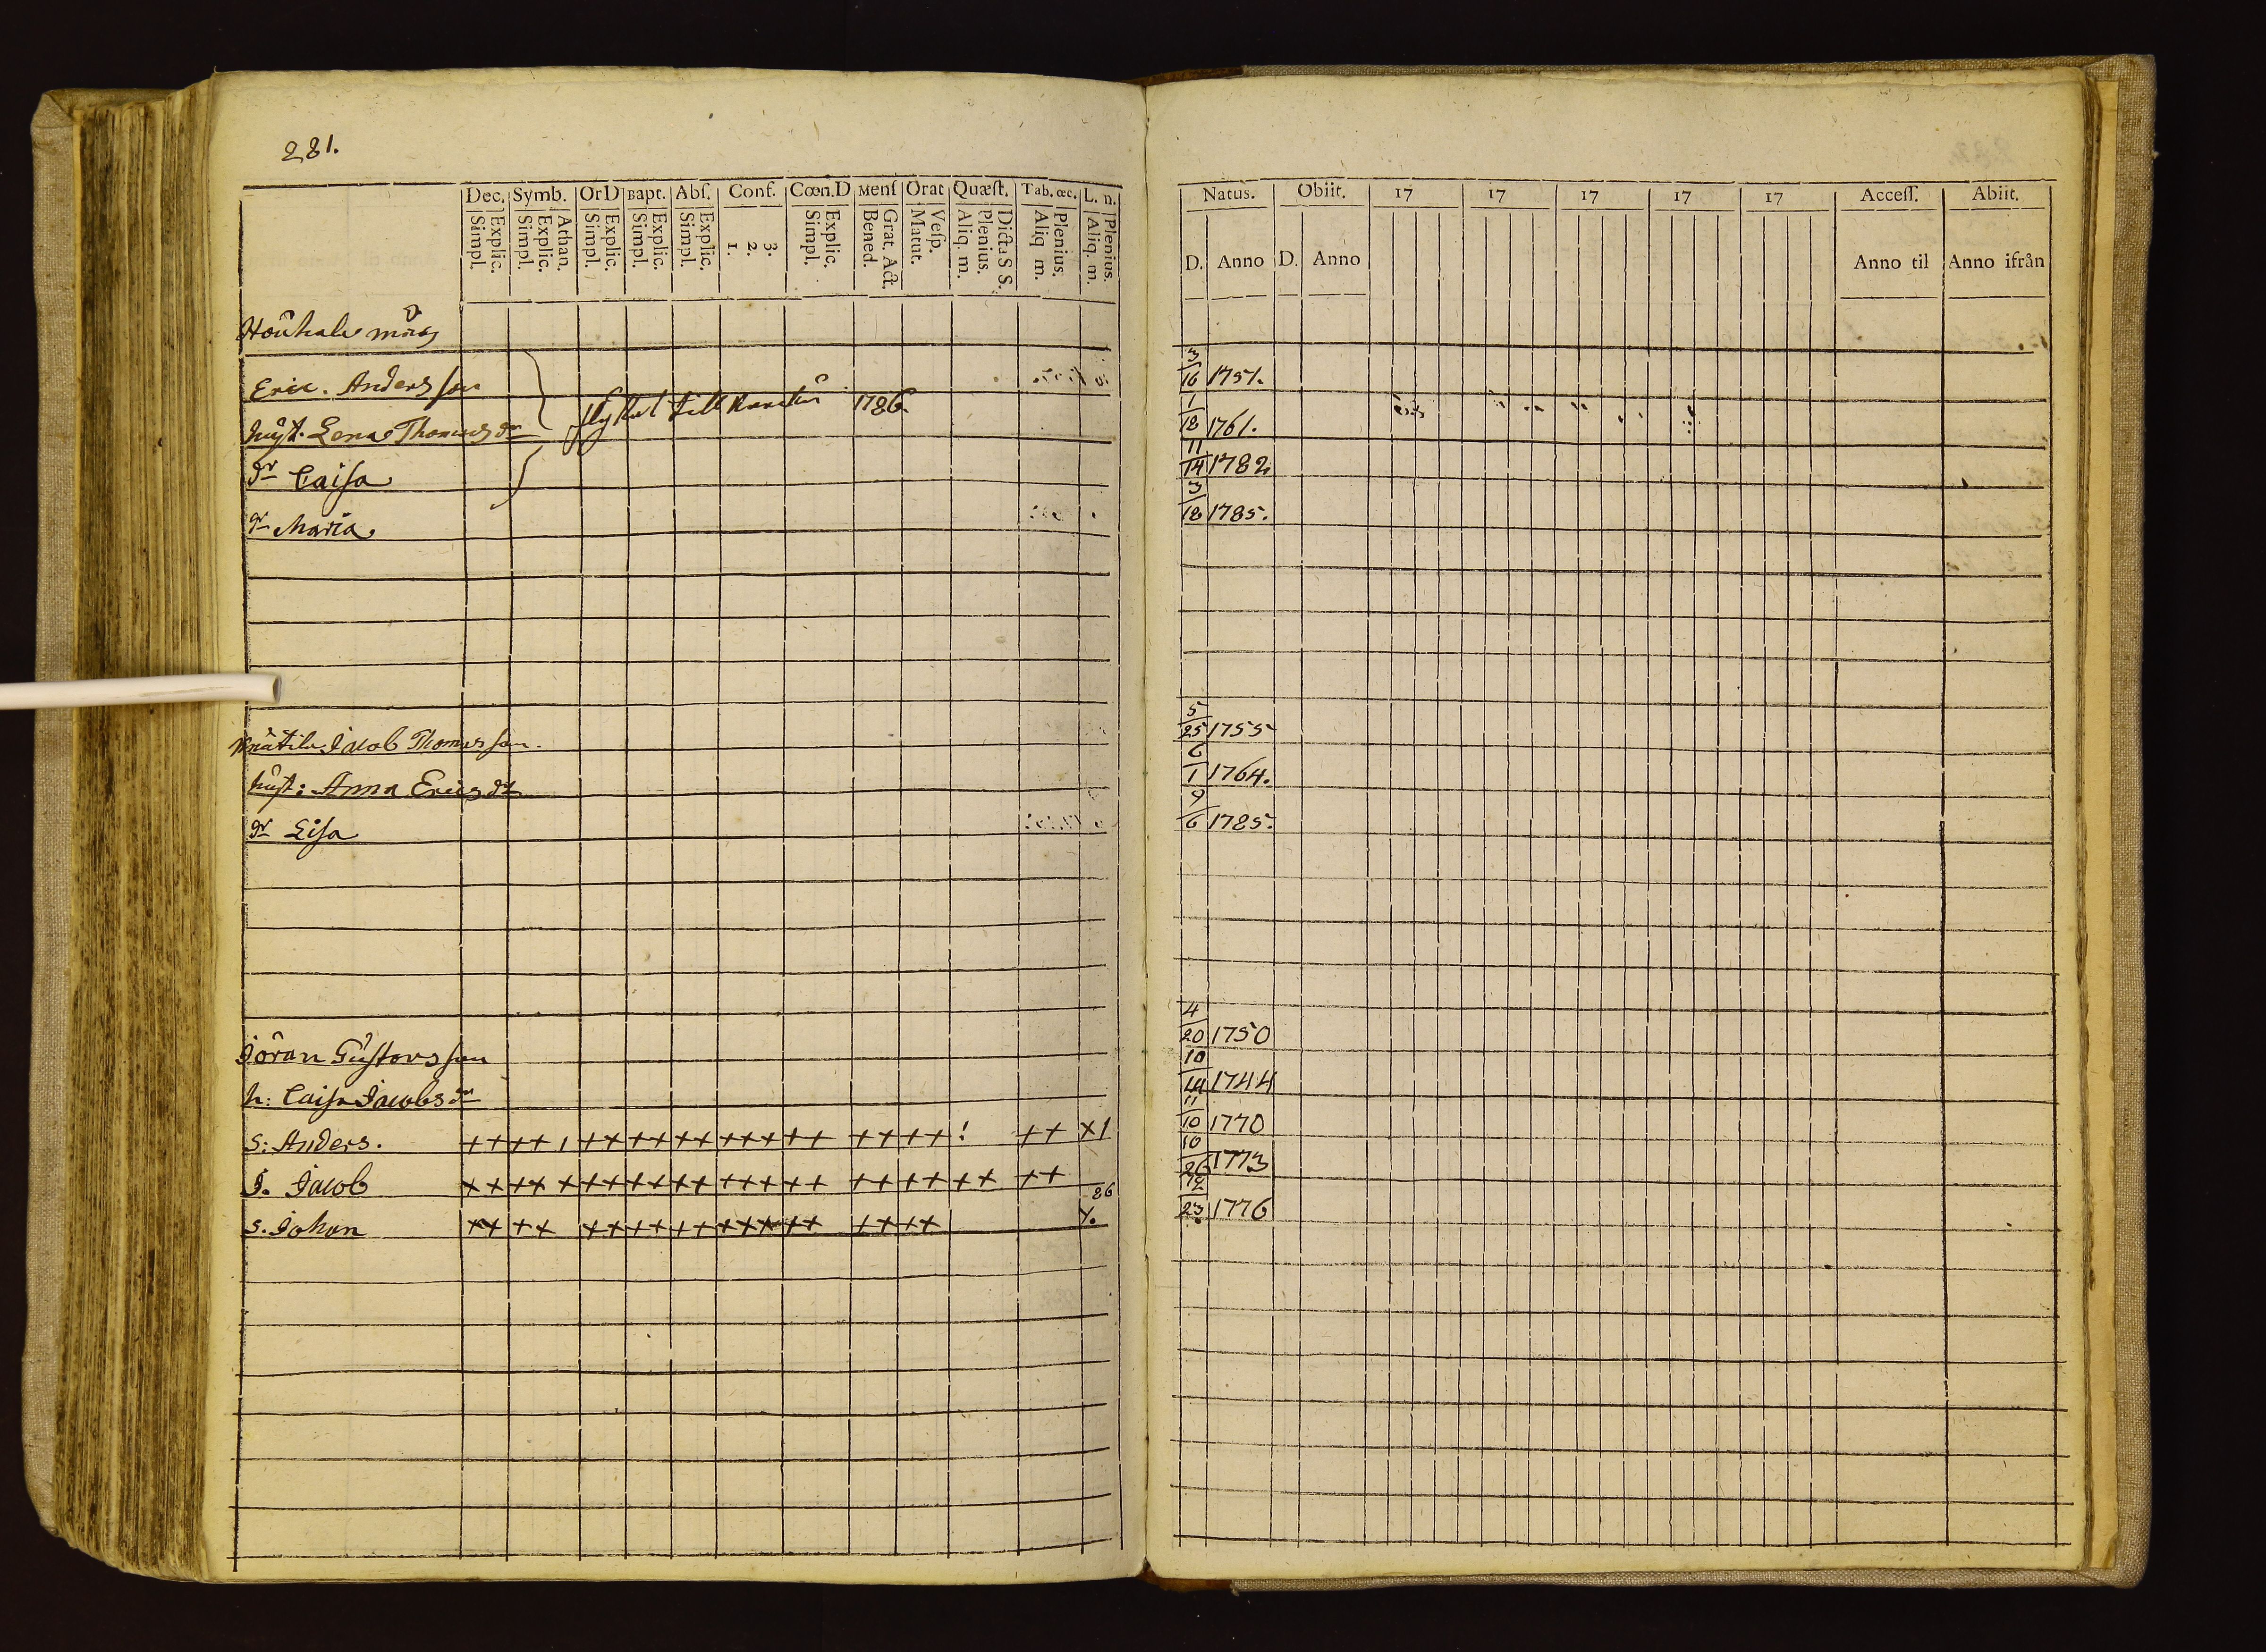 281.
Dec. Symb. OrD Bapt. Abſ. Conf. Cœn.D Menſ Orat Quæſt. Tab. œc. L. n.
Explic. Simpl. Athan. Explic. Simpl. Explic. Simpl. Explic. Simpl. Explic. Simpl. 3. 2. 1. Explic. Simpl. Grat. Act. Bened. Veſp. Matut. Dicta S S. Plenius. Aliq. m. Plenius. Aliq m. Plenius. Aliq. m.
Natus. Obiit. 17 17 17 17 17 Acceſſ. Abiit.
D. Anno D. Anno Anno til Anno ifrån
Eric. Andersson 3/16 1751.
hust. Lena Thomasdr flyttat till 1786. 1/18 1761.
dr Caisa 11/14 1782
dr Maria 3/18 1785.
Jacob Thomasson. 5/25 1755
hust: Anna Ericsdr 6/1 1764.
dr Lisa 9/6 1785.
Jöran Gustavsson 4/20 1750
h: Caisa Jacobsdr 10/14 1744
S: Anders. ++ ++ 1 ++ ++ ++ +++ ++ ++ ++ ! ++ ×1 11/10 1770
S. Jacob ++ ++ + ++ ++ ++ +++ ++ ++ ++ ++ ++ 10/26 1773
S. Johan ++ ++ ++ ++ ++ +++ ++ ++ ++ 86 12/23 1776